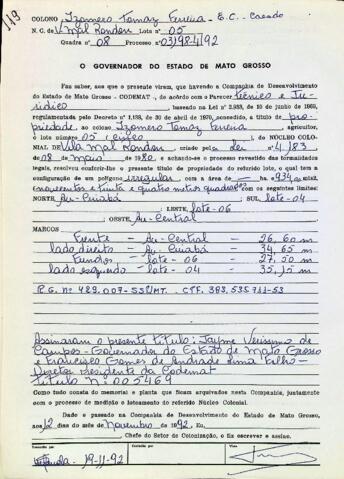 119
COLONO Izomero Tomaz Ferreira - E.C. Casado
N. C. de V. Mal Rondon Lote n.º 05
Quadra n.º 08 Processo n.º 03198-4/92
O GOVERNADOR DO ESTADO DE MATO GROSSO
Faz saber, aos que o presente virem, que havendo a Companhia de Desenvolvimento
do Estado de Mato Grosso - CODEMAT -, de acordo com o Parecer Técnico e Ju-
rídico baseado na Lei n.º 2.933, de 10 de junho de
regulamentada pelo Decreto n.º 1.138, de 30 de abril de 1970, concedido a título de pro-
priedade ao colono Izomero Tomaz Ferreira, agricultor,
o lote número 05 (cinco), do NÚCLEO COLO-
NIAL DE Vila Mal Rondon, criado pela lei n.º 4.183
de 08 de Maio 1980, e achando-se o processo revestido das formalidades
legais, resolveu conferir-lhe o presente título de propriedade do referido lote, o qual tem a
configuração de um polígono irregular com a área de 934,0 mts2,
novecentos e trinta e quatro metros quadrados com os seguintes limites:
NORTE Av- Cuiabá SUL lote-04
LESTE lote-06
OESTE Av-Central
MARCOS
Frente - Av-Central - 26,60 m
lado direito - Av-Cuiabá - 34,65 m
Fundos - lote-06 - 27,50 m
lado esquerdo - lote-04 - 35,15 m
R.G. nº 429.007-SSP/MT. CPF. 383.535.711-53
Assinaram o presente título: Jayme Verissimo de
Campos - Governador do Estado de Mato Grosso
e Francisco Gomes de Andrade Lima Filho-
Diretor Presidente da Codemat
título Nº 005469
Como tudo consta do memorial e planta que ficam arquivados nesta Companhia, juntamente
com o processo de medição e loteamento do referido Núcleo Colonial.
Dado e passado na Companhia de Desenvolvimento do Estado de Mato Grosso,
aos 12 dias do mês de Novembro de 1992. Eu,
Chefe do Setor de Colonização, o fiz escrever e assino.
Conferido
Visto
19-11-92